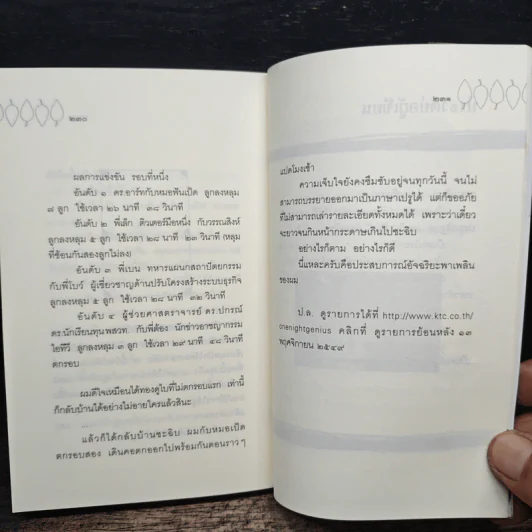 ๒๓๐
ผลการแข่งขัน รอบที่หนึ่ง
อันดับ ๑ ดร.อาร์ทกับหมอฟันเป็ด ลูกลงหลุม
๗ ลูก ใช้เวลา ๒๖ นาที ๓๘ วินาที
อันดับ ๒ พี่เล็ก ติวเตอร์มือหนึ่ง กับวรรณสิงห์
ลูกลงหลุม ๕ ลูก ใช้เวลา ๒๘ นาที ๒๓ วินาที (หลุม
ที่ซ้อนกันสองลูกไม่ลง)
อันดับ ๓ พี่เบน ทหารแผนกสถาปัตยกรรม
กับพี่โบว์ ผู้เชี่ยวชาญด้านปรับโครงสร้างระบบธุรกิจ
ลูกลงหลุม ๕ ลูก ใช้เวลา ๒๘ นาที ๓๒ วินาที
อันดับ ๔ ผู้ช่วยศาสตราจารย์ ดร.ปกรณ์
ดร.นักเรียนทุนพสวท. กับพี่ต้อง นักข่าวอาชญากรรม
ไอทีวี ลูกลงหลุม ๓ ลูก ใช้เวลา ๒๙ นาที ๔๘ วินาที
ตกรอบ
ผมดีใจเหมือนได้ทองดูไบที่ไม่ตกรอบแรก เท่านี้
ก็กลับบ้านได้อย่างไม่อายใครแล้วสินะ
...
แล้วก็ได้กลับบ้านซะฉิบ ผมกับหมอเป็ด
ตกรอบสอง เดินคอตกออกไปพร้อมกันตอนราวๆ
๒๓๑
แปดโมงเช้า
ความเจ็บใจยังคงซึมซับอยู่จนทุกวันนี้ จนไม่
สามารถบรรยายออกมาเป็นภาษาเปรูได้ แต่ก็ขออภัย
ที่ไม่สามารถเล่ารายละเอียดทั้งหมดได้ เพราะว่าเดี๋ยว
จะยาวจนกินหน้ากระดาษเกินไปซะฉิบ
อย่างไรก็ตาม อย่างไรก็ดี
นี่แหละครับคือประสบการณ์อัจฉริยะพาเพลิน
ของผม
ป.ล. ดูรายการได้ที่ http://www.ktc.co.th/
onenightgenius คลิกที่ ดูรายการย้อนหลัง ๑๓
พฤศจิกายน ๒๕๔๙